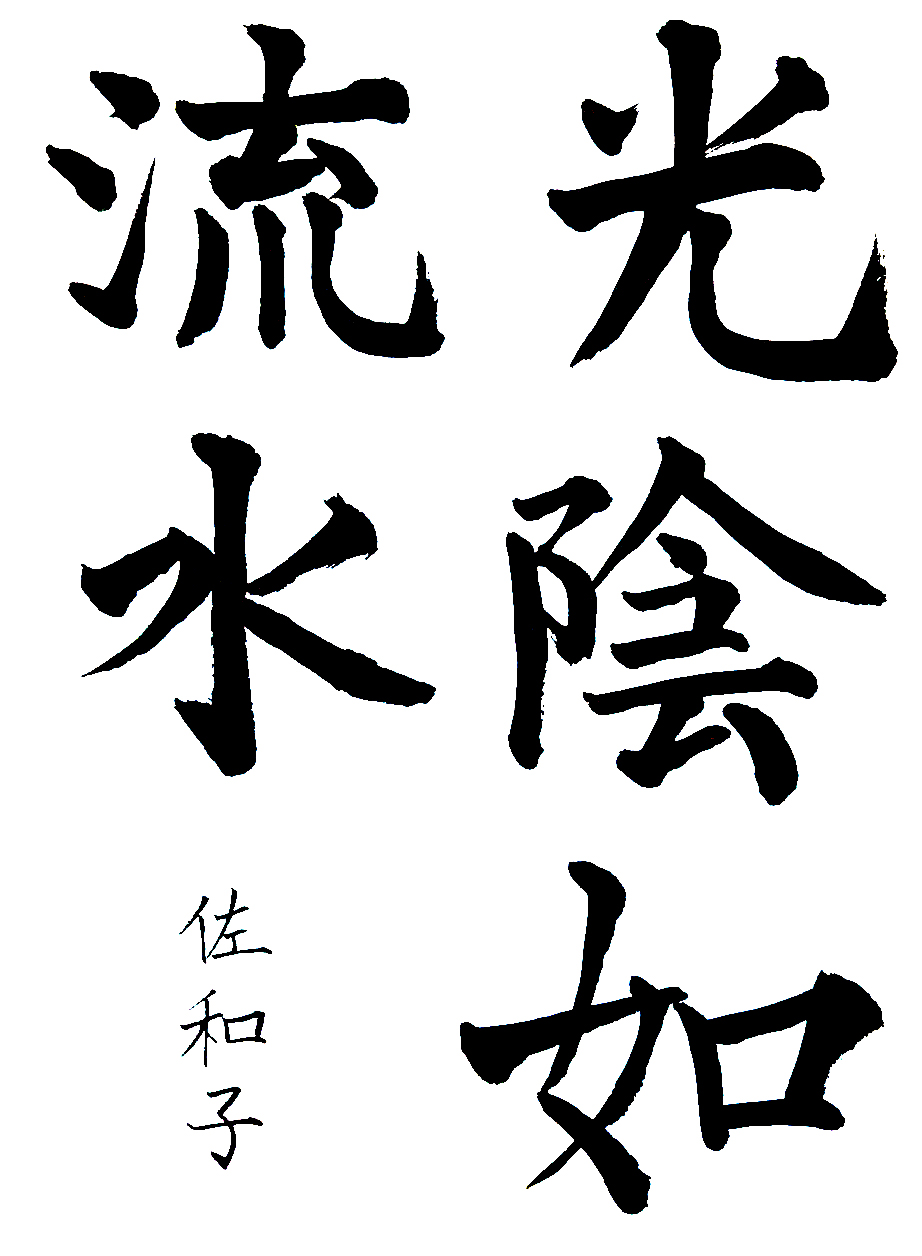 光陰如
流水
佐和子